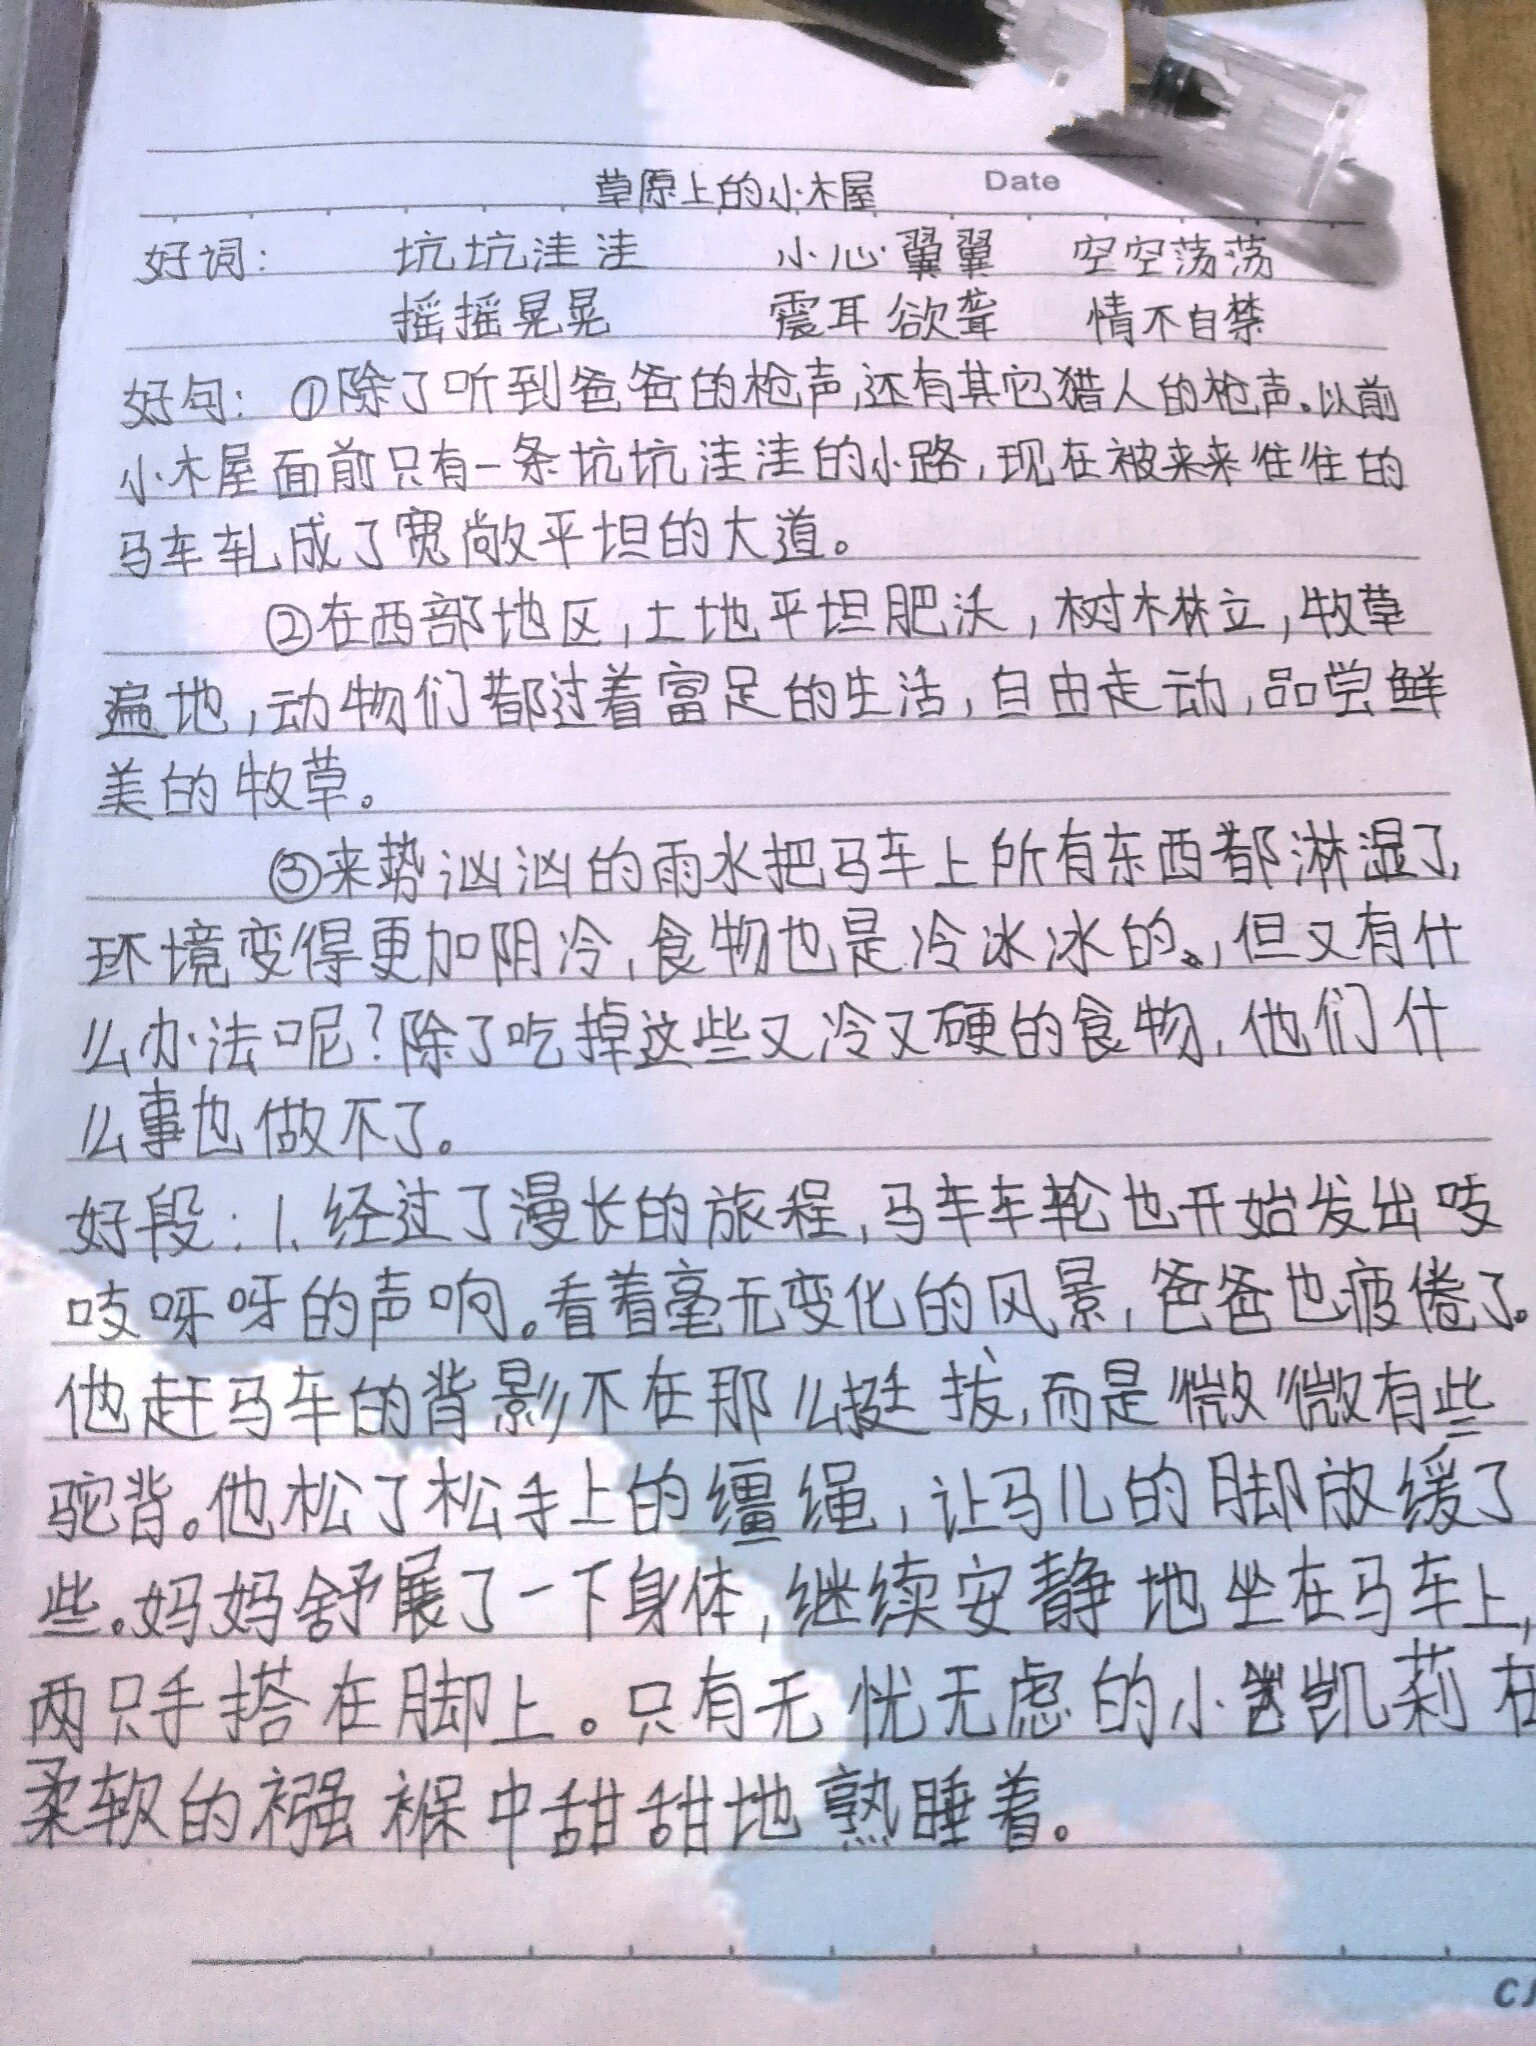 草原上的小木屋 Date
好词: 坑坑洼洼 小心翼翼 空空荡荡
摇摇晃晃 震耳欲聋 情不自禁
好句: ①除了听到爸爸的枪声,还有其它猎人的枪声。以前
小木屋面前只有一条坑坑洼洼的小路,现在被来来往往的
马车轧成了宽敞平坦的大道。
②在西部地区,土地平坦肥沃,树木林立,牧草
遍地,动物们都过着富足的生活,自由走动,品尝鲜
美的牧草。
③来势汹汹的雨水把马车上所有东西都淋湿了,
环境变得更加阴冷,食物也是冷冰冰的,但又有什
么办法呢?除了吃掉这些又冷又硬的食物,他们什
么事也做不了。
好段: 1、经过了漫长的旅程,马车车轮也开始发出吱
吱呀呀的声响。看着毫无变化的风景,爸爸也疲倦了。
他赶马车的背影不在那么挺拔,而是微微有些
驼背。他松了松手上的缰绳,让马儿的脚放缓了
些。妈妈舒展了一下身体,继续安静地坐在马车上,
两只手搭在脚上。只有无忧无虑的小凯莉在
柔软的襁褓中甜甜地熟睡着。